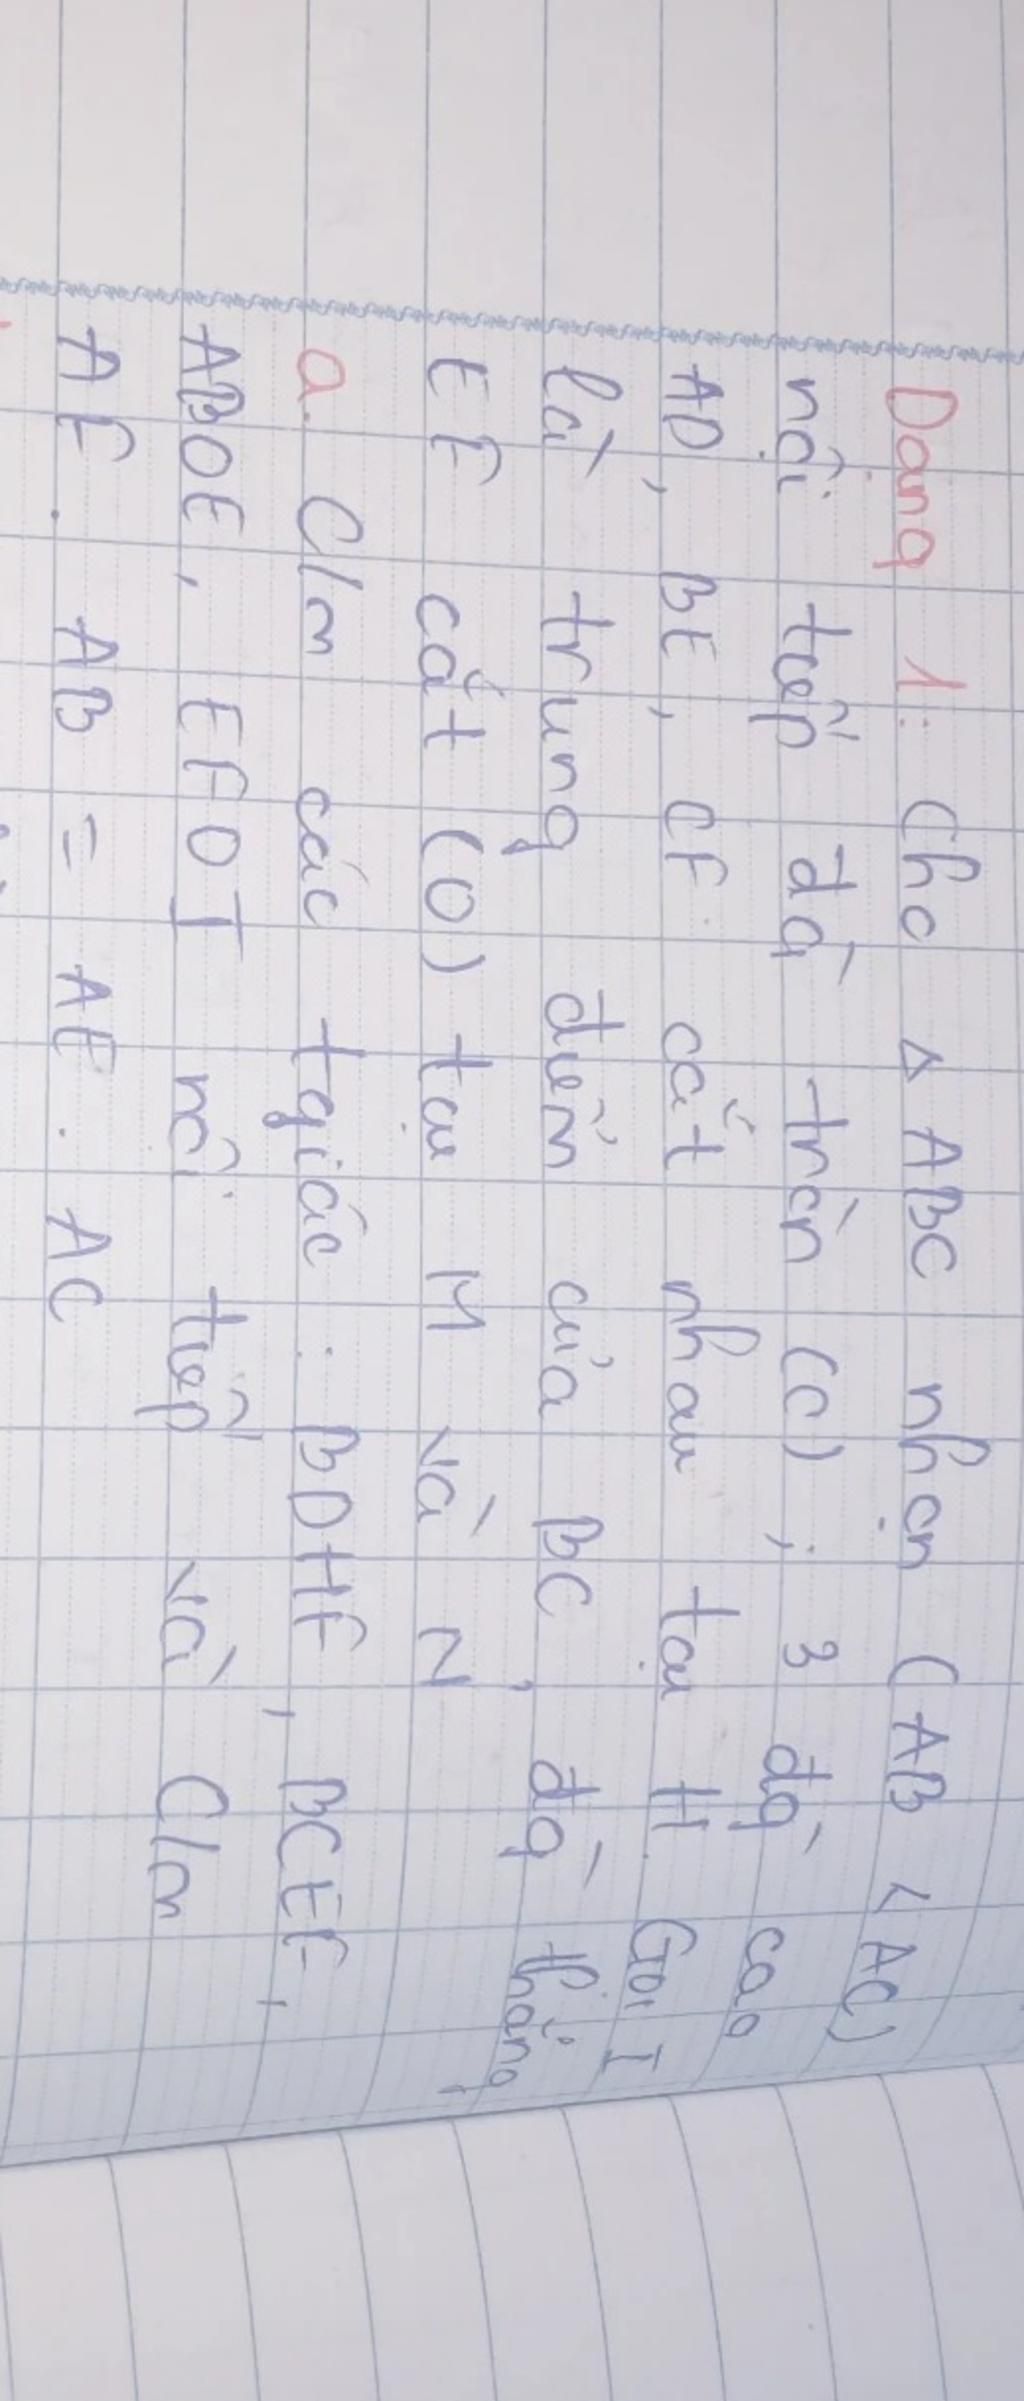 Dạng 1: Cho △ ABC nhọn (AB < AC)
nội tiếp đg̀ tròn (O); 3 đg̀ cao
AD, BE, CF cắt nhau tại H. Gọi I
là trung điểm của BC, đg̀ thẳng
EF cắt (O) tại M và N
a. C/m các tgiác: BDHF, BCEF,
ABDE, EFDI nội tiếp và C/m
AF. AB = AE. AC